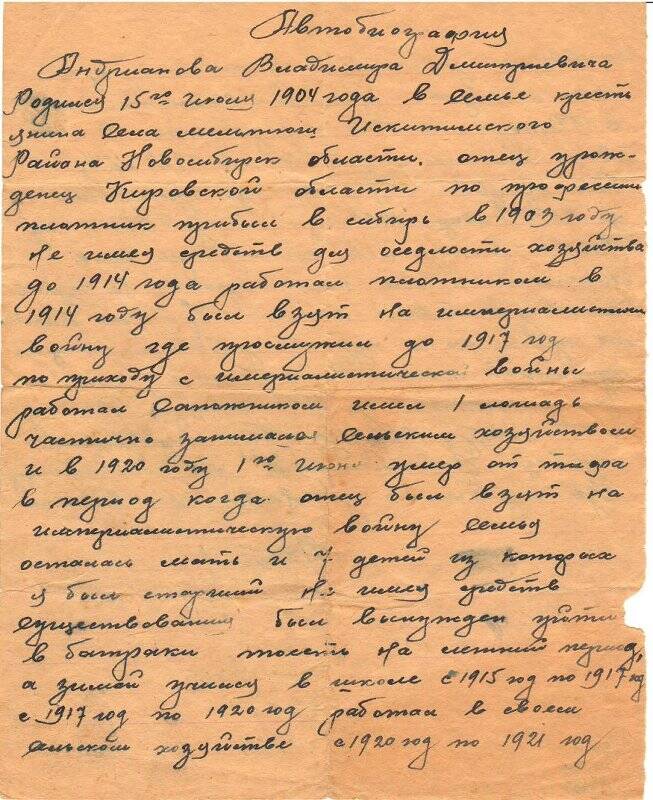 Автобиография
Андрианова Владимира Дмитриевича
Родился 15го июля 1904 года в семье кресть
янина села мельтюш Искитимского
Района Новосибирск области. отец урож-
денец Кировской области по профессии
плотник прибыл в сибирь в 1903 году
не имея средств для оседлости хозяйства
до 1914 года работал плотником в
1914 году был взят на империалистич
войну где прослужил до 1917 год
по приходу с империалистической войны
работал сапожником имел 1 лошадь
частично занимался сельским хозяйством
и в 1920 году 1го июня умер от тифа
в период когда отец был взят на
империалистическую войну семья
осталась мать и 7 детей из которых
я был старший не имея средств
существования был вынужден уйти
в батраки тоесть на летний период,
а зимой учился в школе с 1915 год по 1917 год
с 1917 год по 1920 год работал в своем
сельском хозяйстве с 1920 год по 1921 год